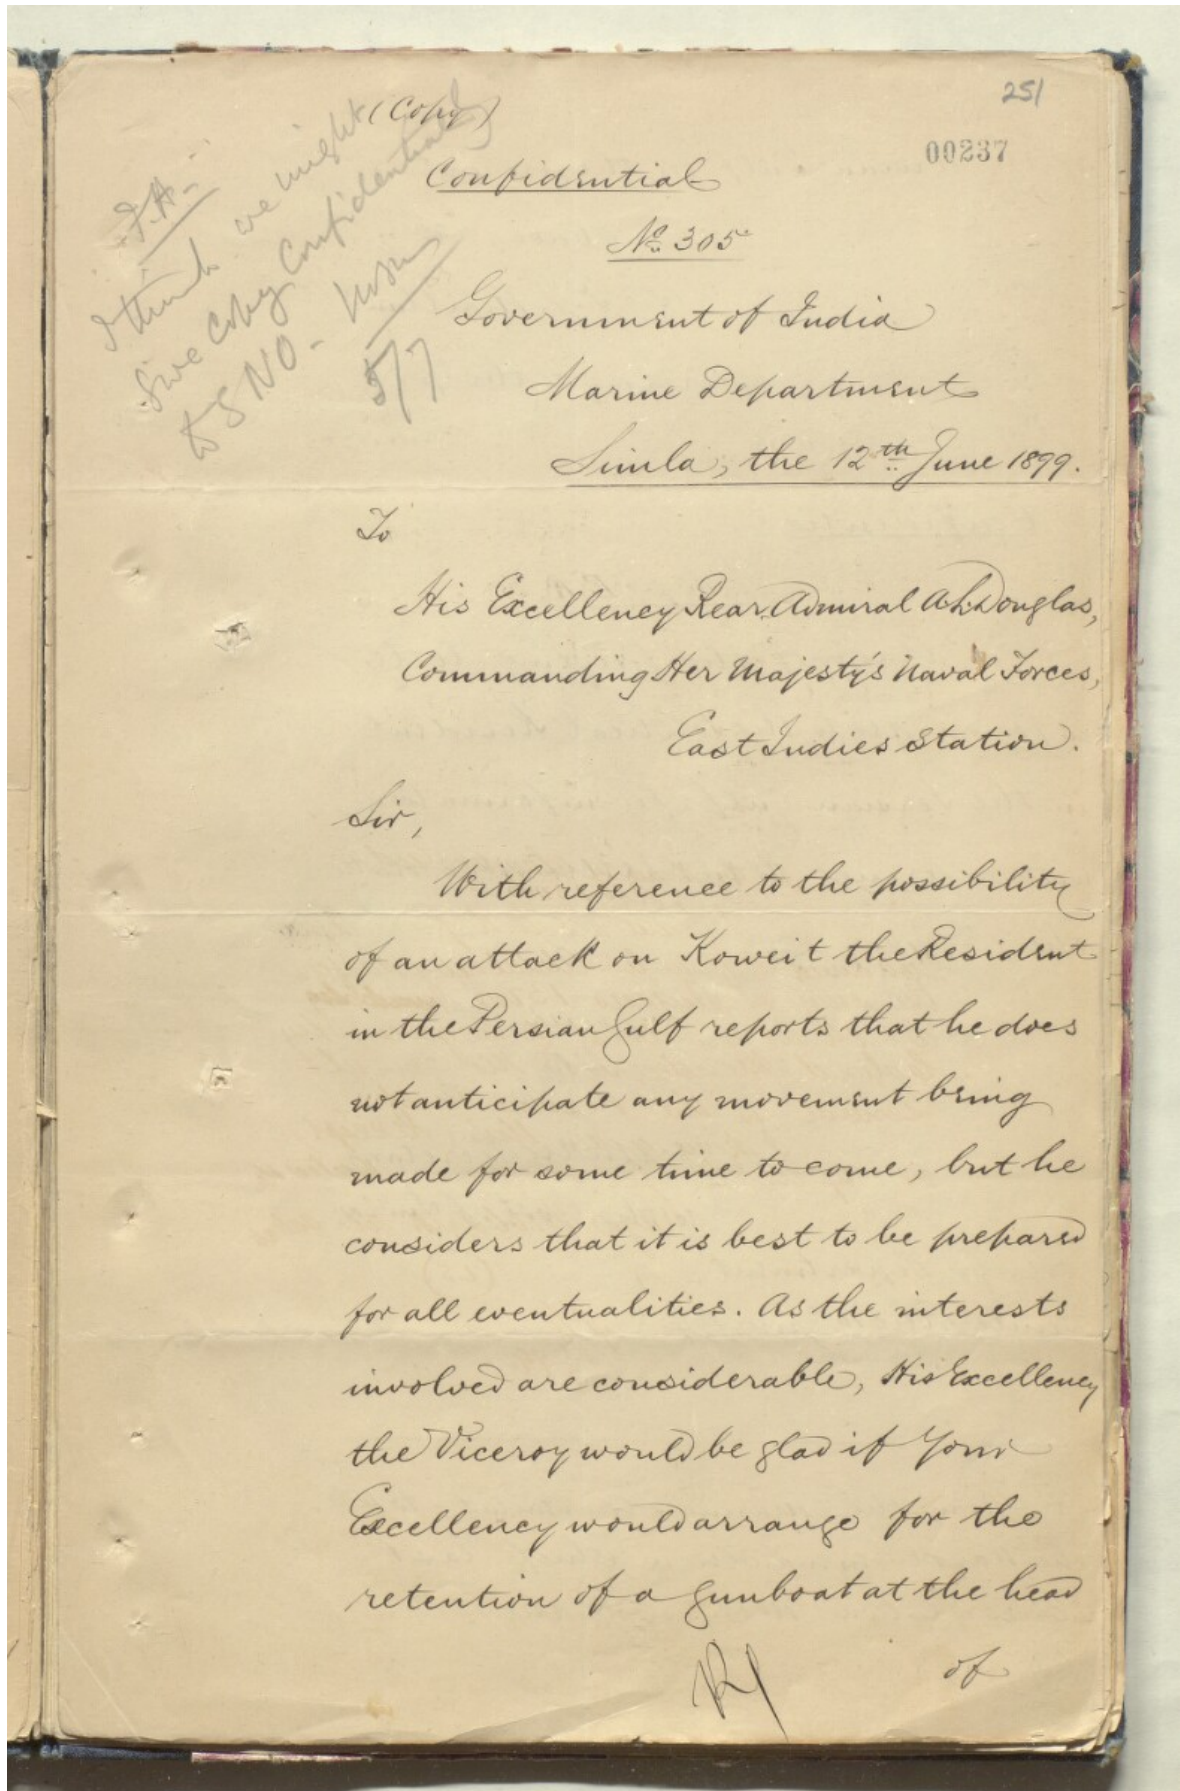 251
00237
(Copy)
Confidential
No. 305
F.A.
I think we might
give copy Confidentially
to SNO -
5/7
Government of India
Marine Department
Simla, the 12th June 1899.
To
His Excellency Rear Admiral A.L. Douglas,
Commanding Her Majesty's Naval Forces,
East Indies Station.
Sir,
With reference to the possibility
of an attack on Koweit the Resident
in the Persian Gulf reports that he does
not anticipate any movement being
made for some time to come, but he
considers that it is best to be prepared
for all eventualities. As the interests
involved are considerable, His Excellency
the Viceroy would be glad if Your
Excellency would arrange for the
retention of a gunboat at the head
of